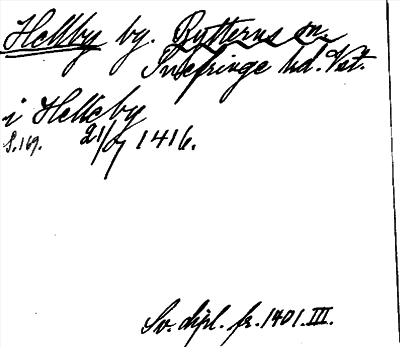 Hellby by. Rytterns sn.
Snefringe hd. Vst.
i Helleby
S. 169. 21/7 1416.
Sv. dipl. fr. 1401. III.